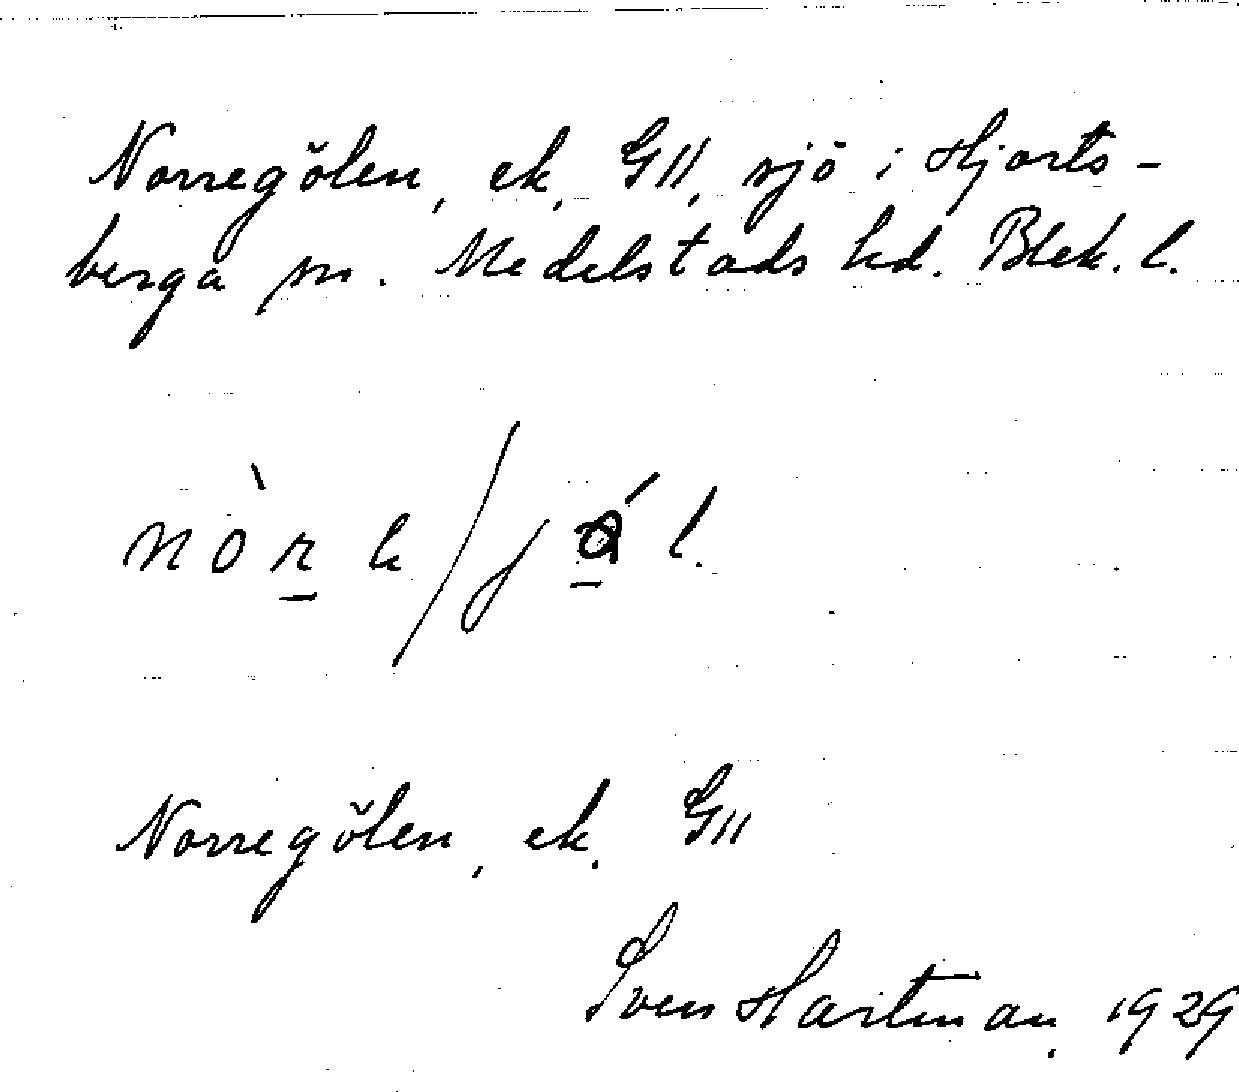 Norregölen, ek. GII, sjö i Hjorts-
berga sn. Medelstads hd. Blek. l.
nòre/jǿl.
Norregölen, ek. GII
Sven Hartman. 1929